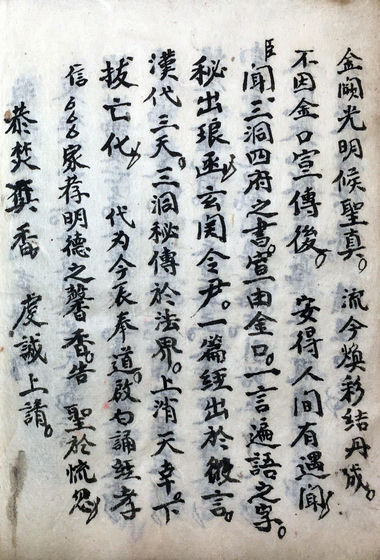 金阙光明候聖真。流今煥彩結丹成。
不因金口宣傳後。安得人间有遇聞
臣聞三洞四府之書。宣由金口。一言遍語之字。
秘出琅函玄関令尹。一篇經出於微言。
漢代三天。三洞秘傳於法界。上消天幸。下
拔亡化 代为今辰奉道。啟白誦經孝
信厶厶厶家荐明德之馨香。告 聖於慌忽
恭焚真香。虔誠上請。